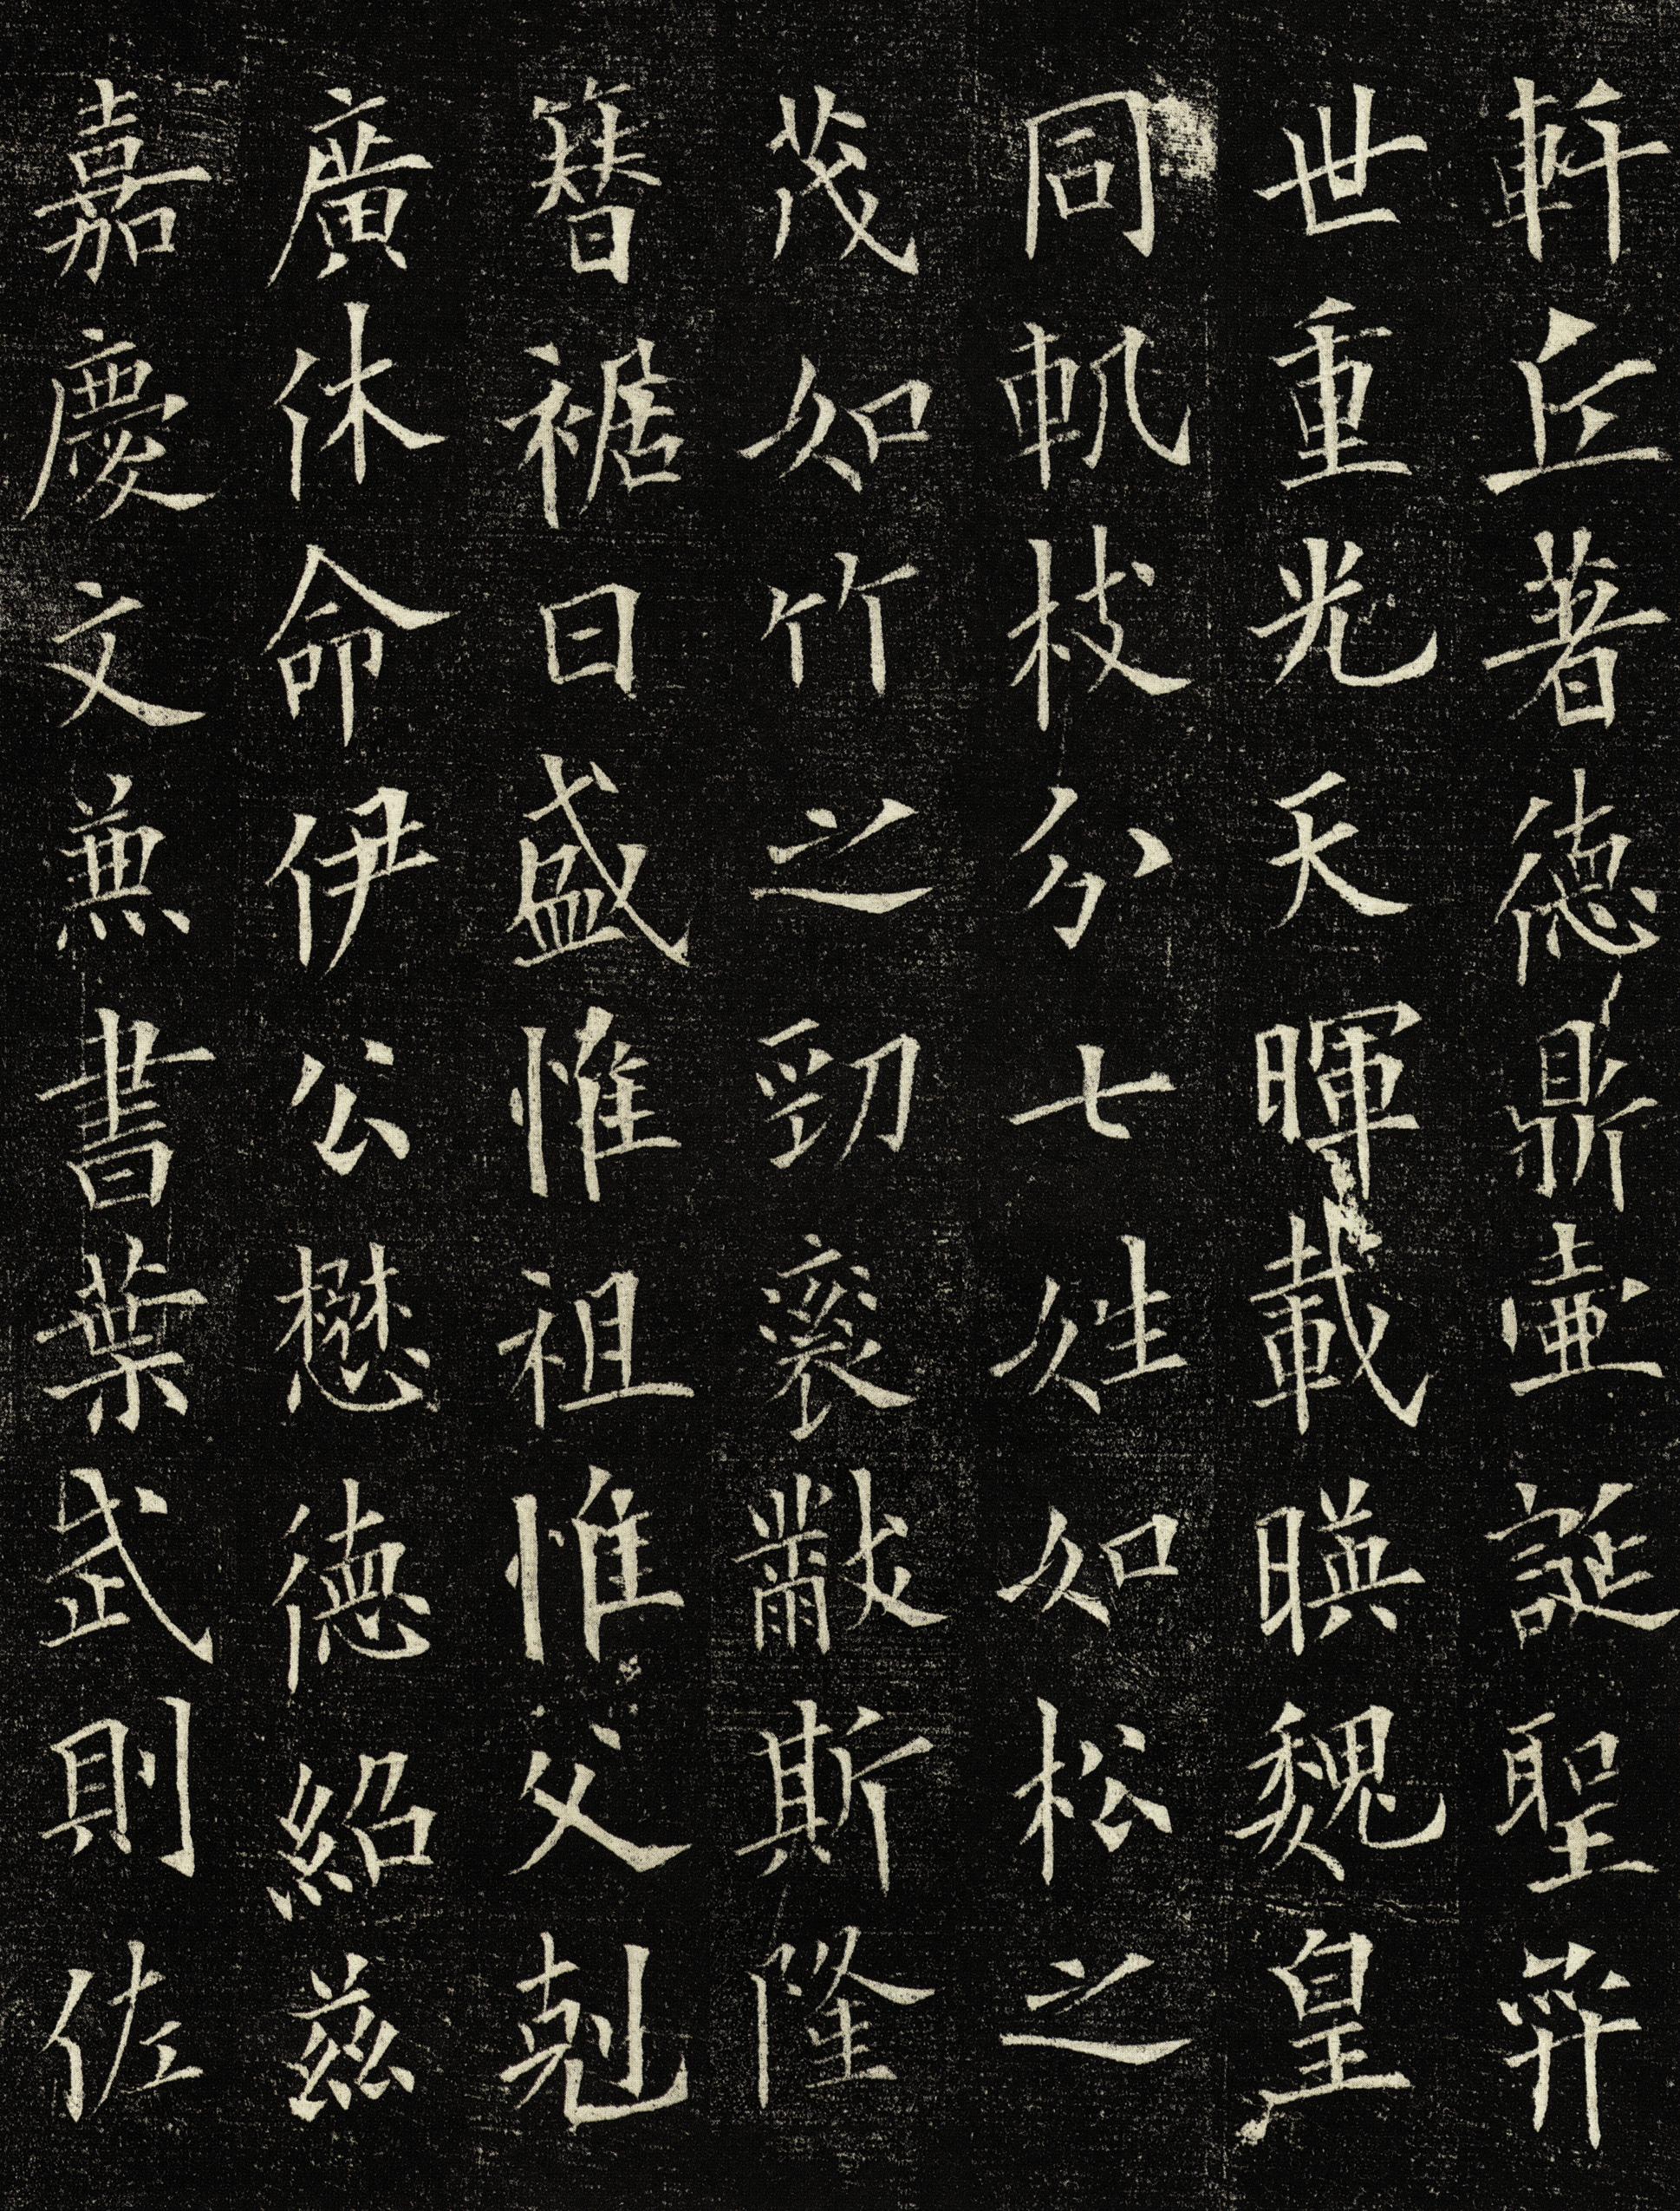 軒丘著德鼎壷誕聖弈
世重光天暉載暎魏皇
同軌枝分七姓如松之
茂如竹之勁袞黻斯隆
簮裾日盛惟祖惟父剋
廣休命伊公懋德紹兹
嘉慶文兼書葉武則佐